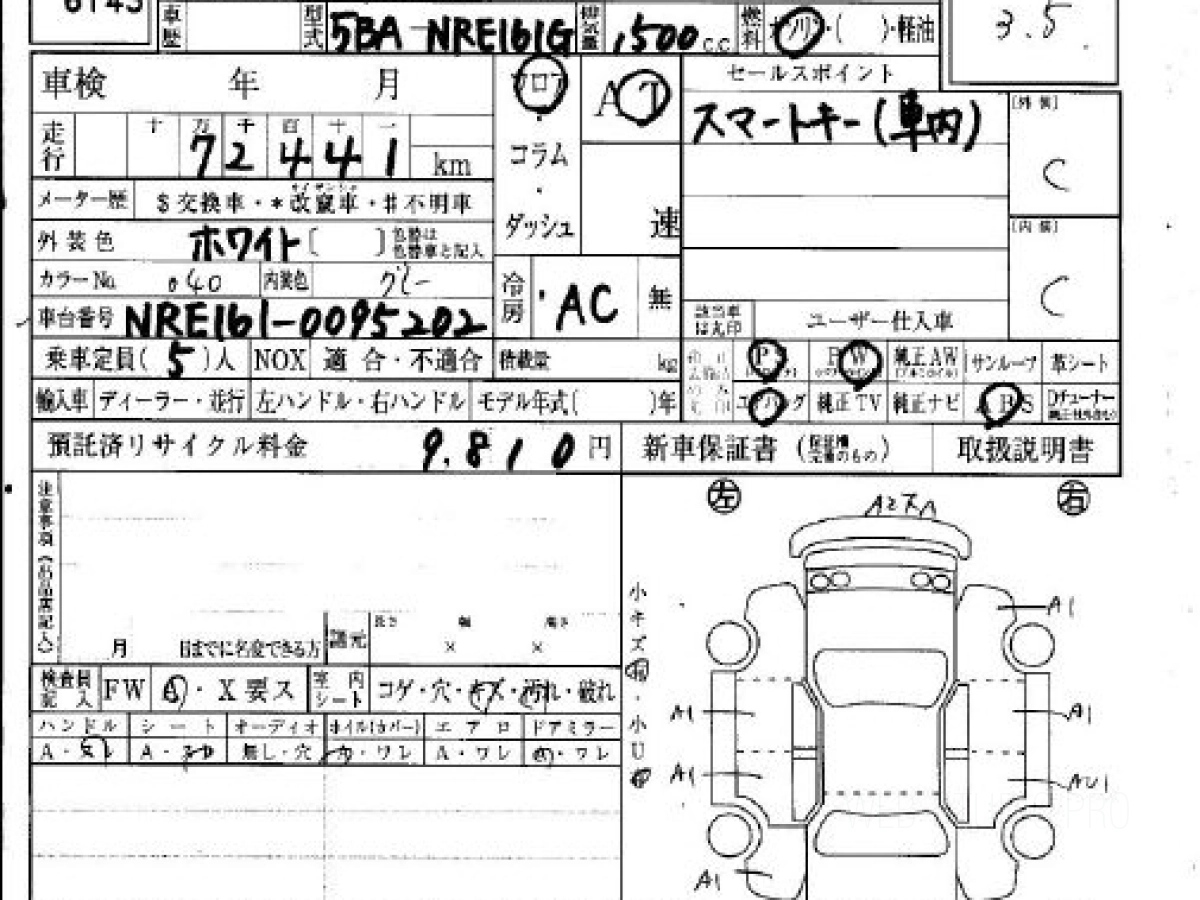 6143
車歴 型式 5BA-NRE161G 排気量 1,500 c.c 燃料 ・( )・軽油
3.5
車検 年 月
フロア ・ コラム ・ ダッシュ
AT
速
セールスポイント
スマートキー(車内)
[外装]
C
[内装]
C
走行 十 万 千 百 十 一
72441 km
メーター歴 $交換車・*改竄車・#不明車
外装色 ホワイト[ ]色替は色替車と記入
カラーNo. 040 内装色 グレー
車台番号 NRE161-0095202
冷房 AC 無
該当車は丸印 ユーザー仕入車
乗車定員( 5 )人 NOX 適合・不適合 積載量 kg
PS PW 純正AW サンルーフ 革シート
輸入車 ディーラー・並行 左ハンドル・右ハンドル モデル年式( )年
エアバッグ 純正TV 純正ナビ ABS Dチューナー
預託済リサイクル料金 9,810 円
新車保証書 取扱説明書
注意事項(出品店記入)
月 日までに名変できる方
諸元 長さ 幅 高さ
× ×
検査員記入 FW A・X要ス 室内シート コゲ・穴・キズ・汚れ・破れ
ハンドル シート オーディオ ホイル(カバー) エアロ ドアミラー
A・スレ A・ 無し・穴 A・ワレ A・ワレ A・ワレ
左 右
小キズ ・小U
A1
A1
A1
A1
AU1
A1